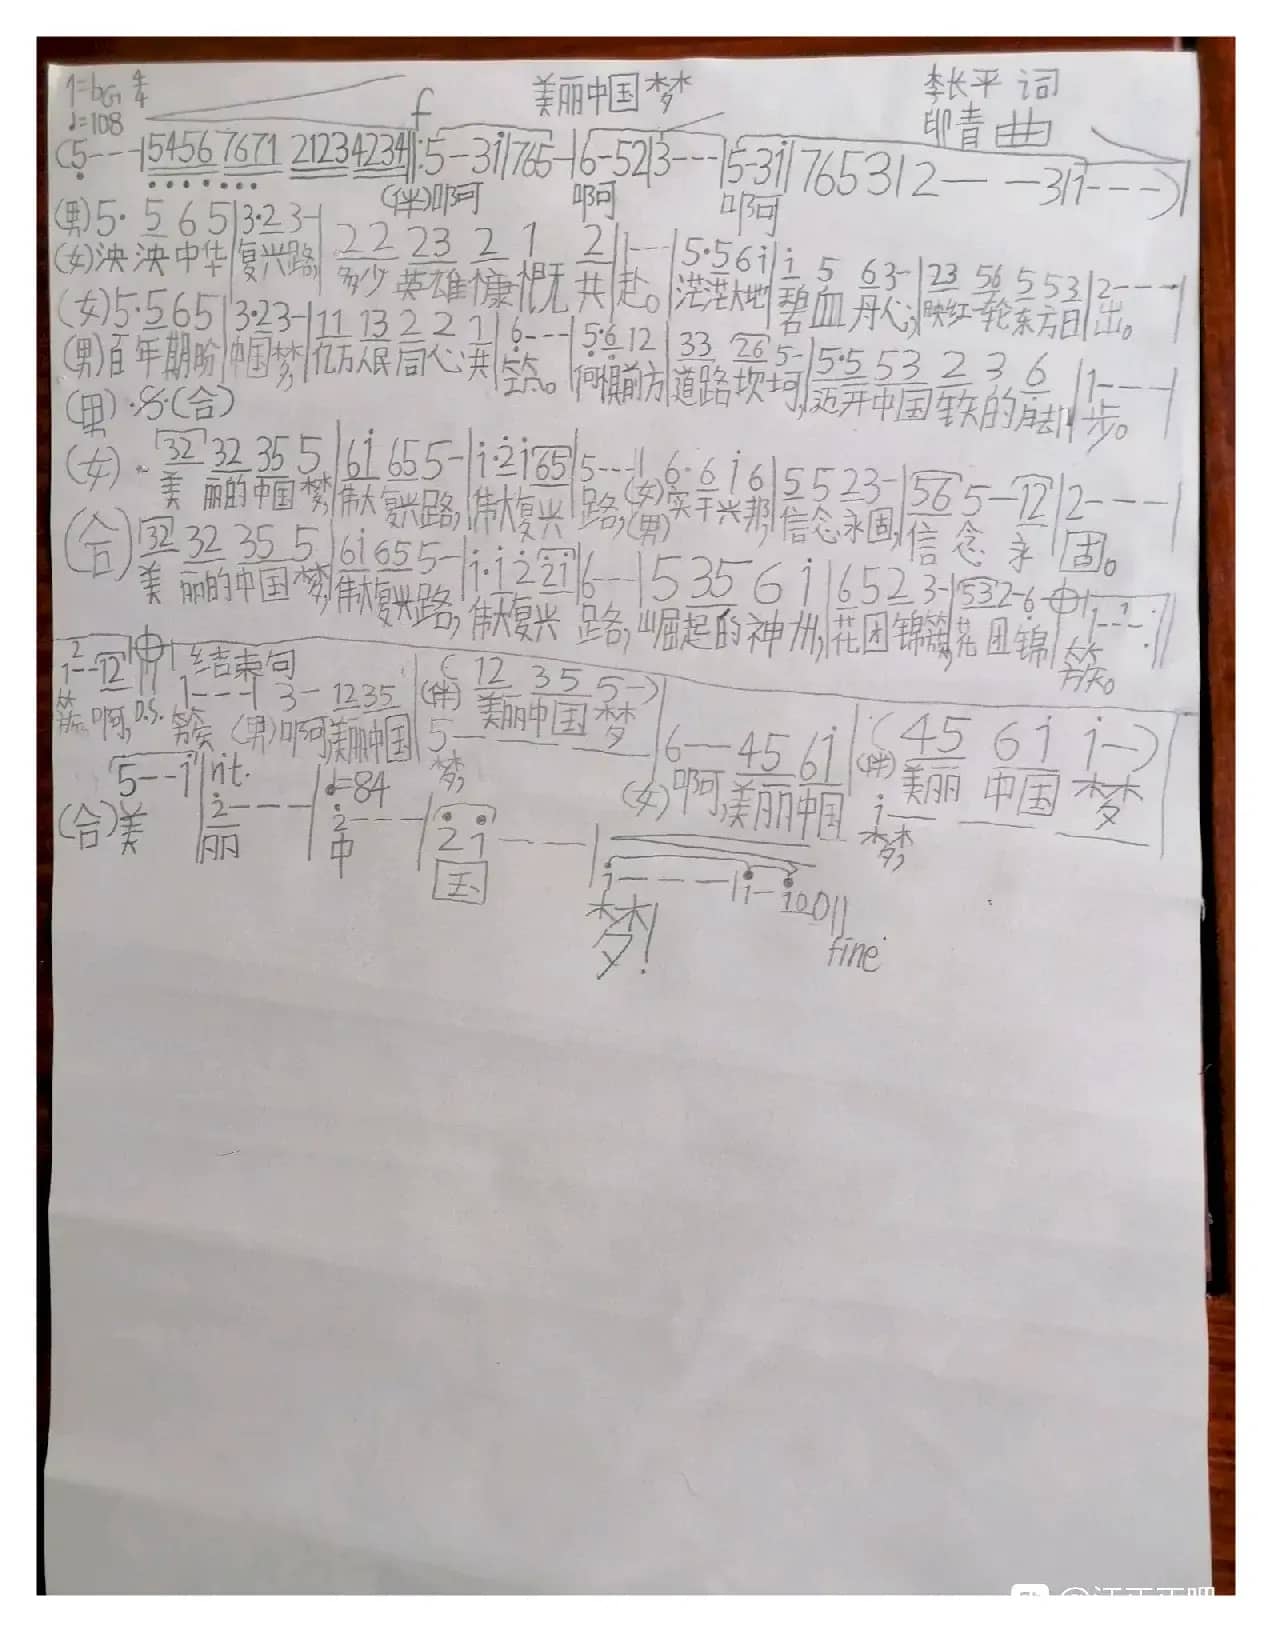 1=bG 4/4 美丽中国梦 李长平 词
♩=108 f 印青 曲
(5---|5456 7671 2123 4234‖:5-3i|765-|6-52|3---|5-3i|7653|2---3|1---)|
(伴)啊 啊 啊
(男)5· 5 6 5|3·2 3-|22 23 2 1 2|1---|5·5 6 i|i 5 6 3-|23 56 5 53|2---|
(女)泱泱中华复兴路,多少英雄慷慨共赴。茫茫大地碧血丹心,映红一轮东方日出。
(女)5·5 6 5|3·2 3-|11 13 2 2 1|6---|5·6 12|33 26 5-|5·5 53 2 3 6|1---|
(男)百年期盼中国梦,亿万人民同心共筑。何惧前方道路坎坷,迈开中国铁的脚步。
(男)·S·(合)
(女) 32 32 35 5|6i 65 5-|i·2 i 65|5---|6·6 i 6|5 5 2 3-|56 5-12|2---|
美丽的中国梦,伟大复兴路,伟大复兴路,(女)(男)实干兴邦,信念永固,信念永固。
(合) 32 32 35 5|6i 65 5-|i·i 2 2i|6---|5 35 6 i|6 5 2 3-|53 2-6|1---:‖
美丽的中国梦,伟大复兴路,伟大复兴路,崛起的神州,花团锦簇,花团锦簇。
2 1--12 | 结束句
1---|3-1235|(12 35 5-)|6--45 6i|(45 6i i-)|
簇啊,D.S. 簇 (男)啊,美丽中国(伴)美丽中国梦
5---
梦, (女)啊,美丽中国 (伴)美丽中国梦
i---
梦,
5--i|2---|♩=84 2---|2i---|i---|i-i00‖
(合)美丽中国梦!
fine